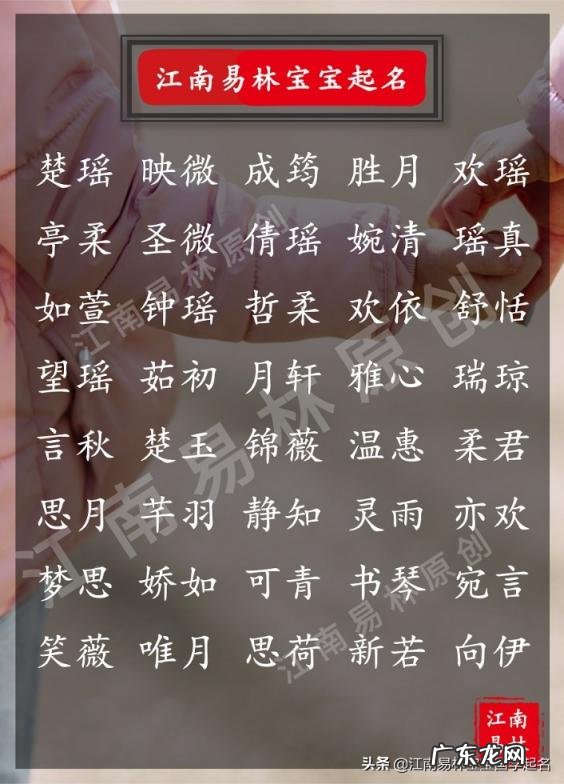 江南易林宝宝起名
楚瑶 映微 成筠 胜月 欢瑶
亭柔 圣微 倩瑶 婉清 瑶真
如萱 钟瑶 哲柔 欢依 舒恬
望瑶 茹初 月轩 雅心 瑞琼
言秋 楚玉 锦薇 温惠 柔君
思月 芊羽 静知 灵雨 亦欢
梦思 娇如 可青 书琴 宛言
笑薇 唯月 思荷 新若 向伊
江南易林原创
江南易林原创
江南易林原创
江南
易林
头条 @江南易林宝宝国学起名
广东龙网